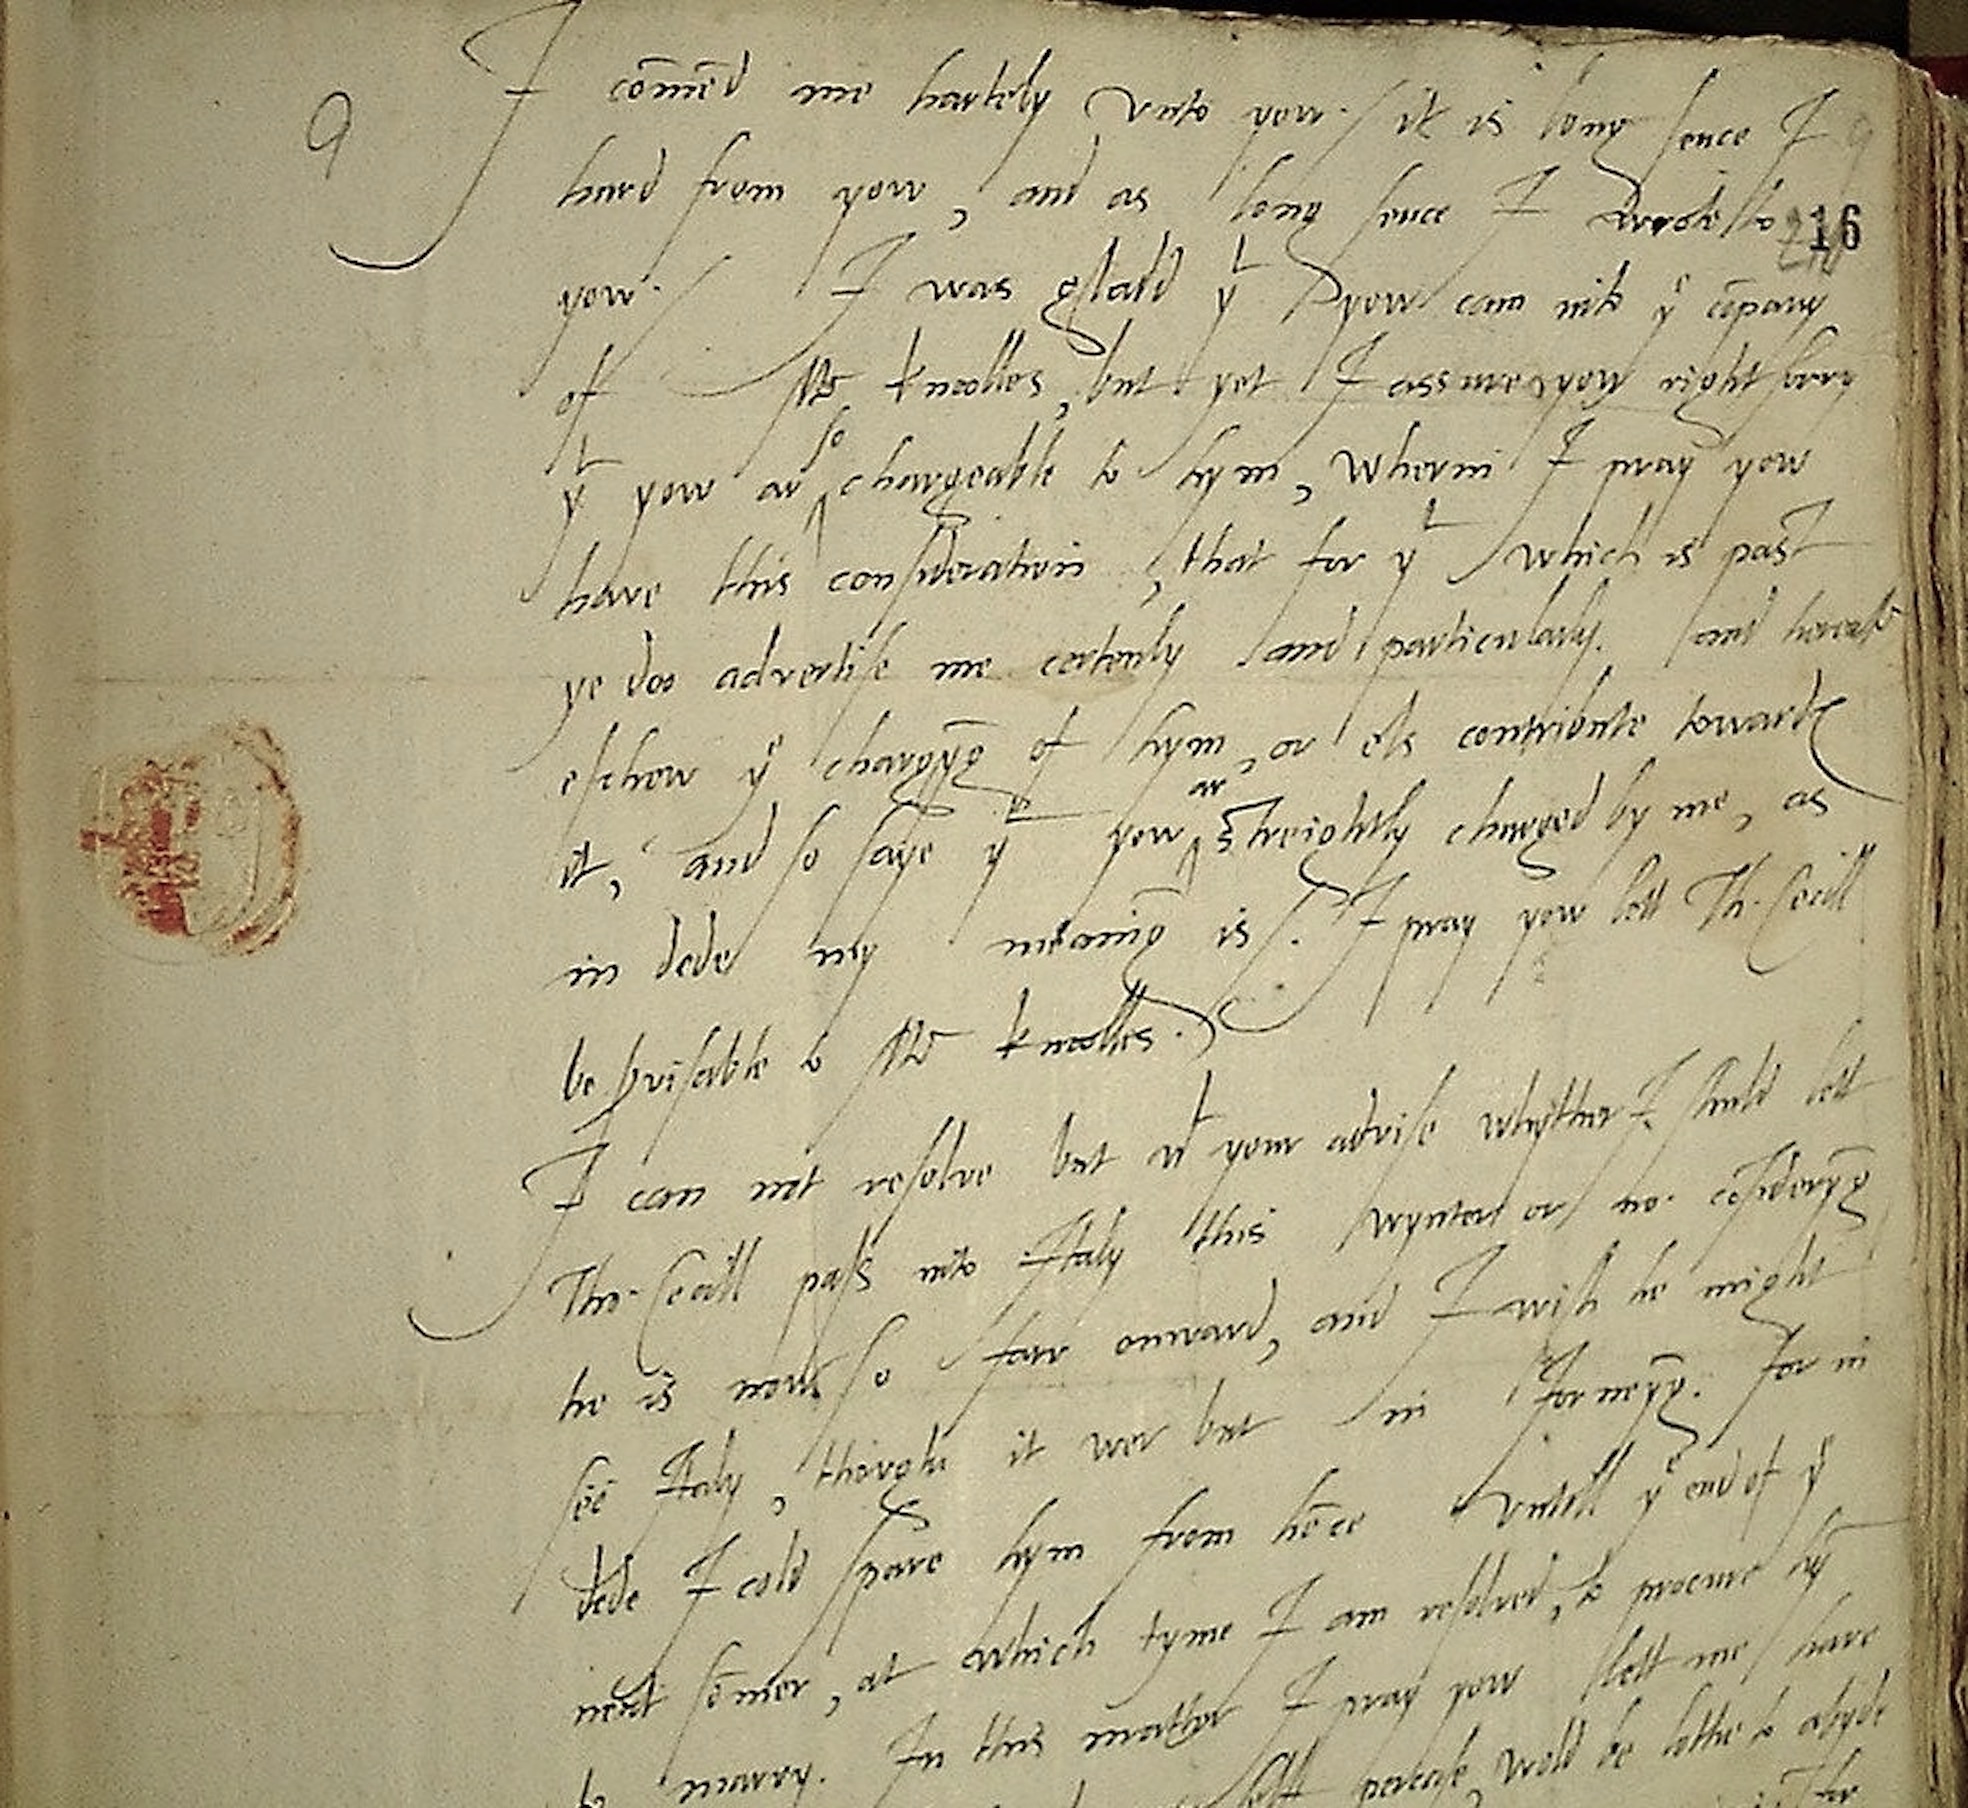 9 I cōmēd me hartely vnto yow. it is long sence I 9
hard from yow, and as long sence I wrote to 216
yow. I was glad yt yow cam into ye cōpany
of Mr knolles, but yet I assure yow right sorry
yt yow ar so chargeable to hym, wherin I pray yow
have this consideration, that for yt which is past
ye doo advertise me certenly and particularly. and
eschew ye chargyg of hym, or els contribute towards
it, and so saye yt yow ar streightly charged by me, as
in dede my meanig is. I pray yow lett Th. Cecill
be servisable to Mr knolles.
I can not resolve but wt your advise whyther I shuld lett
Tho. Cecill pass into Italy this wynter or no. cōsideryg
he is now so farr onward, and I wish he might
see Italy, though it wer but in Jorneyg. for in
dede I cold spare hym from hēce vntill ye end of ye
next sōmer, at which tyme I am resolved, to procure hȳ
to marry. In this matter I pray yow lett me have
percase wold be lothe to abyde